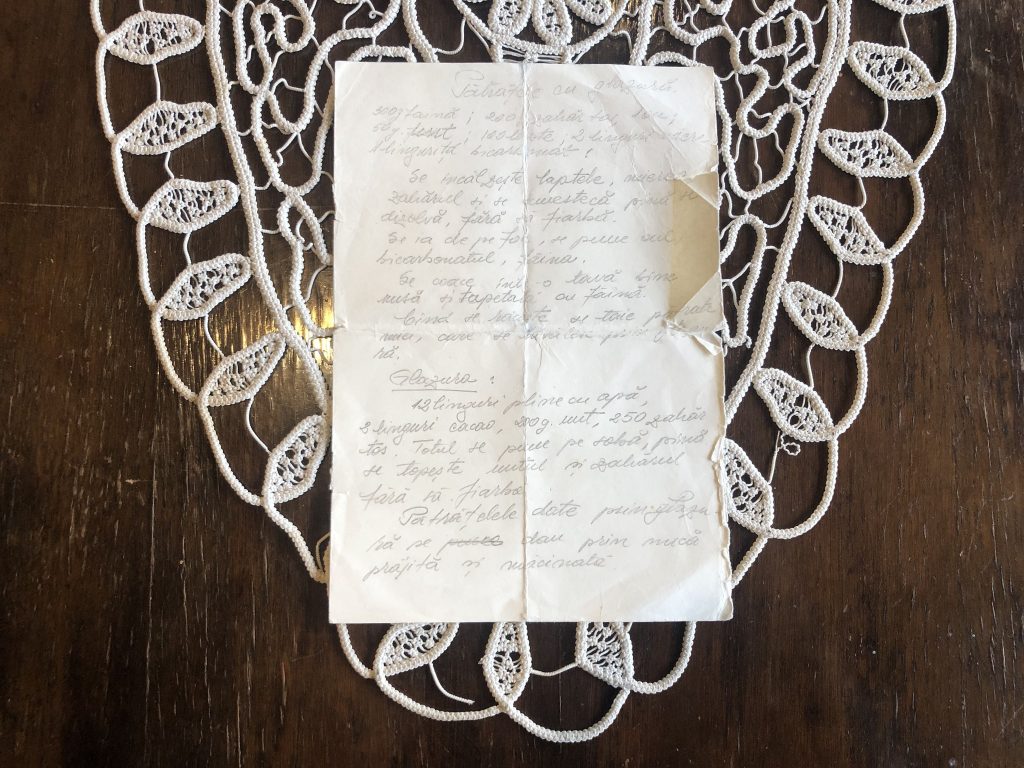 Pătrățele cu glazură.
300g făină; 200g zahăr tos, 1 ou;
50g. unt; 100 lapte; 2 linguri
1 linguriță bicarbonat.
Se încălzește laptele,
zahărul și se amestecă pînă se
dizolvă, fără să fiarbă.
Se ia de pe foc, se pune oul,
bicarbonatul, făina.
Se coace într-o tavă bine
unsă și tapetată cu făină.
Cînd se răcește se taie
mici, care se prin
ră.
Glazura:
12 linguri pline cu apă,
2 linguri cacao, 200g. unt, 250 zahăr
tos. Totul se pune pe sobă, pînă
se topește untul și zahărul
fără să fiarbă
Pătrățelele date prin glazu
ră se dau prin nucă
prăjită și măcinată